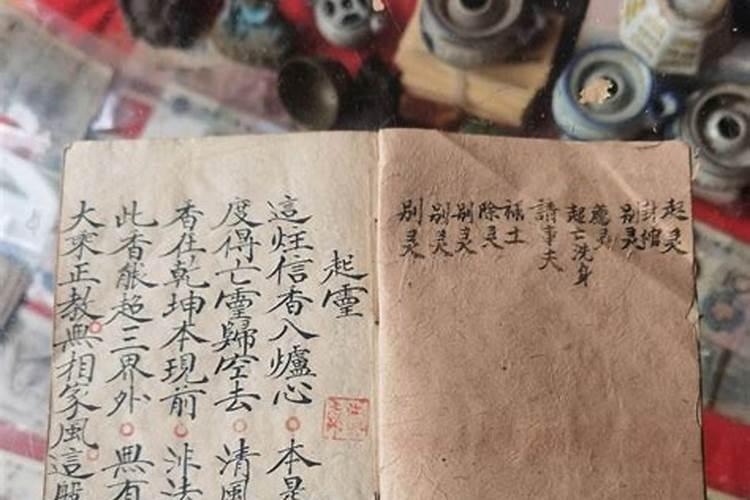 起灵
封棺
别灵
起亡洗身
請事夫
禄土
除灵
别灵
别灵
别灵
起霊
這炷信香入爐心 本是
度得亡霊歸空去 清風
香在乾坤本現前 非法
此香能超三界外 無有
大乘正教無相家風這